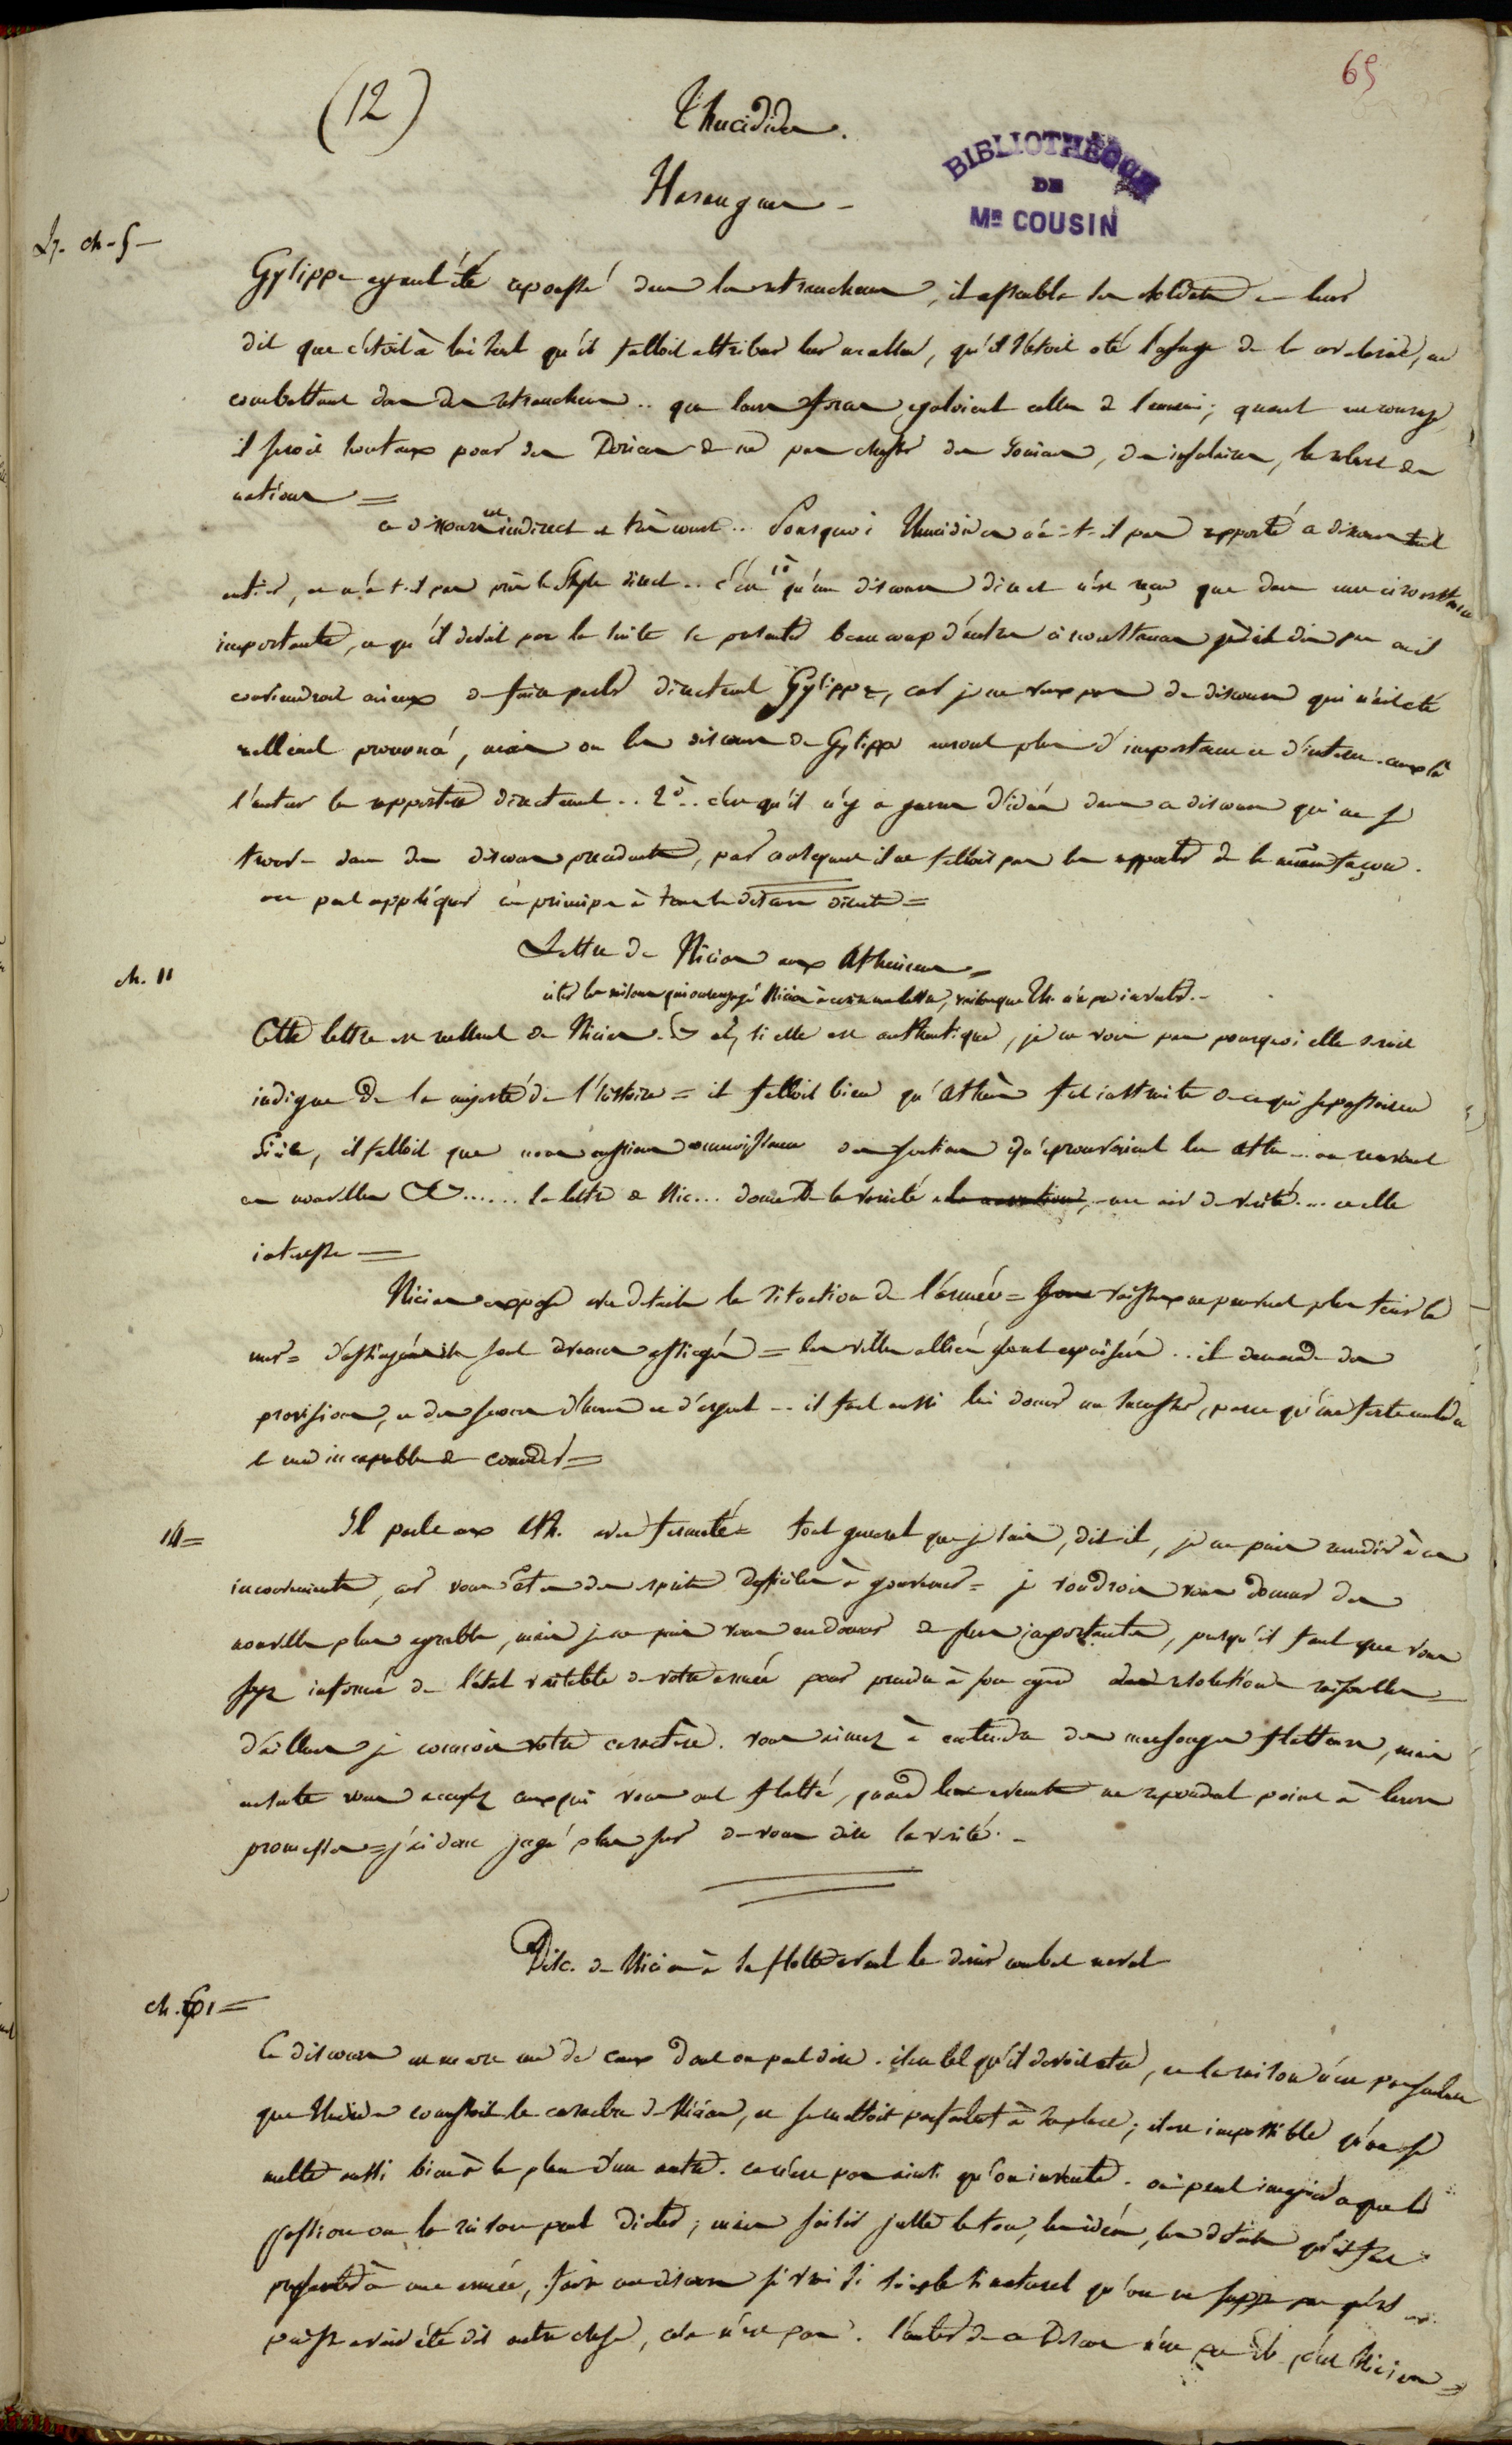 (12)
65
Thucidides.
Harangues -
BIBLIOTHÈQUE
DE
MR COUSIN
L. 7. ch - 5 -
Gylippe ayant été repoussé dans les retranchemens, il assembla ses soldats et leur
dit que c'étoit à lui seul qu'il falloit attribuer leur malheur, qu'il s'étoit oté l'usage de la cavalerie, en
combattant dans des retranchemens .. que leurs forces egaloient celles de l'ennemi; quant au courage
il seroit honteux pour des Doriens de ne pas chasser des Ioniens, des insulaires, le rebut des
nations =
ce discours est indirect et très court... Pourquoi Thucidides n'a-t-il pas rapporté ce discours tout
entier, et n'a-t-il pas pris le style direct .. c'est 1° qu'un discours direct n'est reçu que dans une circonstance
importante, et qu'il devoit par la suite se presenter beaucoup d'autres circonstances où il
conviendroit mieux de faire parler directement Gylippe, car je ne veux pas de discours qui n'ait été
reellement prononcé, mais où les discours de Gylippe auront plus d'importance et d'interet
l'auteur les rapportera directement .. 2° .. c'est qu'il n'y a guere d'idées dans ce discours qui ne se
trouve dans des discours precedents, par consequent il ne falloit pas les rapporter de la même façon.
on peut appliquer ce principe à tous les discours directs =
ch. 11
Lettre de Nicias aux Atheniens =
citer les raisons qui ont engagé Nicias à ecrire une lettre, voilà que Th. n'a pas inventé. -
Cette lettre est reellement de Nicias. et, si elle est authentique, je ne vois pas pourquoi elle seroit
indigne de la majesté de l'histoire = il falloit bien qu'Athènes fut instruite de ce qui se passoit en
Sicile, il falloit que nous eussions connoissance des sentimens qu'eprouvoient les Ath... en recevant
ces nouvelles &...... la lettre de Nic... donne de la varieté à la narration, un air de verité .... et elle
interesse =
Nicias expose avec details la situation de l'armée = vaisseaux ne peuvent plus tenir la
mer = d'assiegeans ils sont devenus assiegés = les villes alliées sont epuisées .. il demande des
provisions, et des secours d'hommes et d'argent -- il faut aussi lui donner un successeur, parce qu'une forte maladie
le rend incapable de commander =
14 =
Il parle aux Ath. avec fermeté = tout general que je suis, dit-il, je ne puis remedier à ces
inconveniens, car vous etes des esprits difficiles à gouverner = je voudrois vous donner des
nouvelles plus agreables, mais je ne puis vous en donner de plus importantes, puisqu'il faut que vous
soyez informés de l'état veritable de votre armée pour prendre à son egard des resolutions raisonnables =
d'ailleurs je connois votre caractère. vous aimez à entendre des mensonges flatteurs, mais
ensuite vous accusez ceux qui vous ont flatté, quand les evenements ne repondent point à leurs
promesses = j'ai donc jugé plus sur de vous dire la verité. -
Disc. de Nicias à sa flotte avant le dernier combat naval
ch. 61 =
Ce discours est encore un de ceux dont on peut dire. il est tel qu'il devoit etre, et la raison n'est pas seulement
que Thucidides connoissoit le caractere de Nicias, et se mettoit parfaitement à sa place; il est impossible qu'on se
mette aussi bien à la place d'un autre. ce n'est pas ainsi qu'on invente. on peut imaginer ce que la
passion ou la raison peut dicter; mais saisir juste le ton, les idées, les details qu'il faut
presenter à une armée, faire un discours si vrai si simple si naturel qu'on ne suppose pas qu'il
puisse avoir été dit autre chose, cela n'est pas. l'auteur de ce Discours n'est pas Th. c'est Nicias =